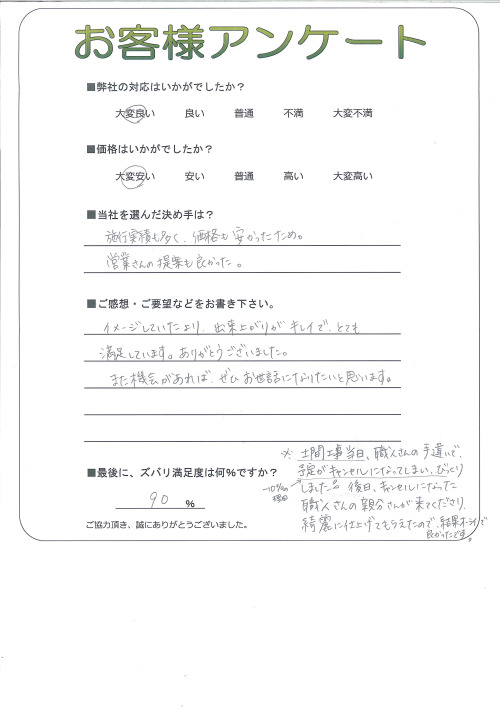 お客様アンケート
■弊社の対応はいかがでしたか？
大変良い 良い 普通 不満 大変不満
■価格はいかがでしたか？
大変安い 安い 普通 高い 大変高い
■当社を選んだ決め手は？
施行実績も多く、価格も安かったため。
営業さんの提案も良かった。
■ご感想・ご要望などをお書き下さい。
イメージしていたより、出来上がりがキレイで、とても
満足しています。ありがとうございました。
また機会があれば、ぜひお世話になりたいと思います。
■最後に、ズバリ満足度は何％ですか？
90 ％
ご協力頂き、誠にありがとうございました。
※ 土間工事当日、職人さんの手違いで、
予定がキャンセルになってしまい、びっくり
しました。後日、キャンセルになった
-10%の
理由
職人さんの親分さんが来てくださり、
綺麗に仕上げてもらえたので、結果オーライで
良かったです。